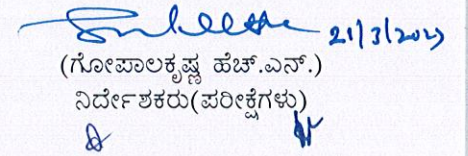 21/3/2023
(ಗೋಪಾಲಕೃಷ್ಣ ಹೆಚ್.ಎನ್.)
ನಿರ್ದೇಶಕರು(ಪರೀಕ್ಷೆಗಳು)